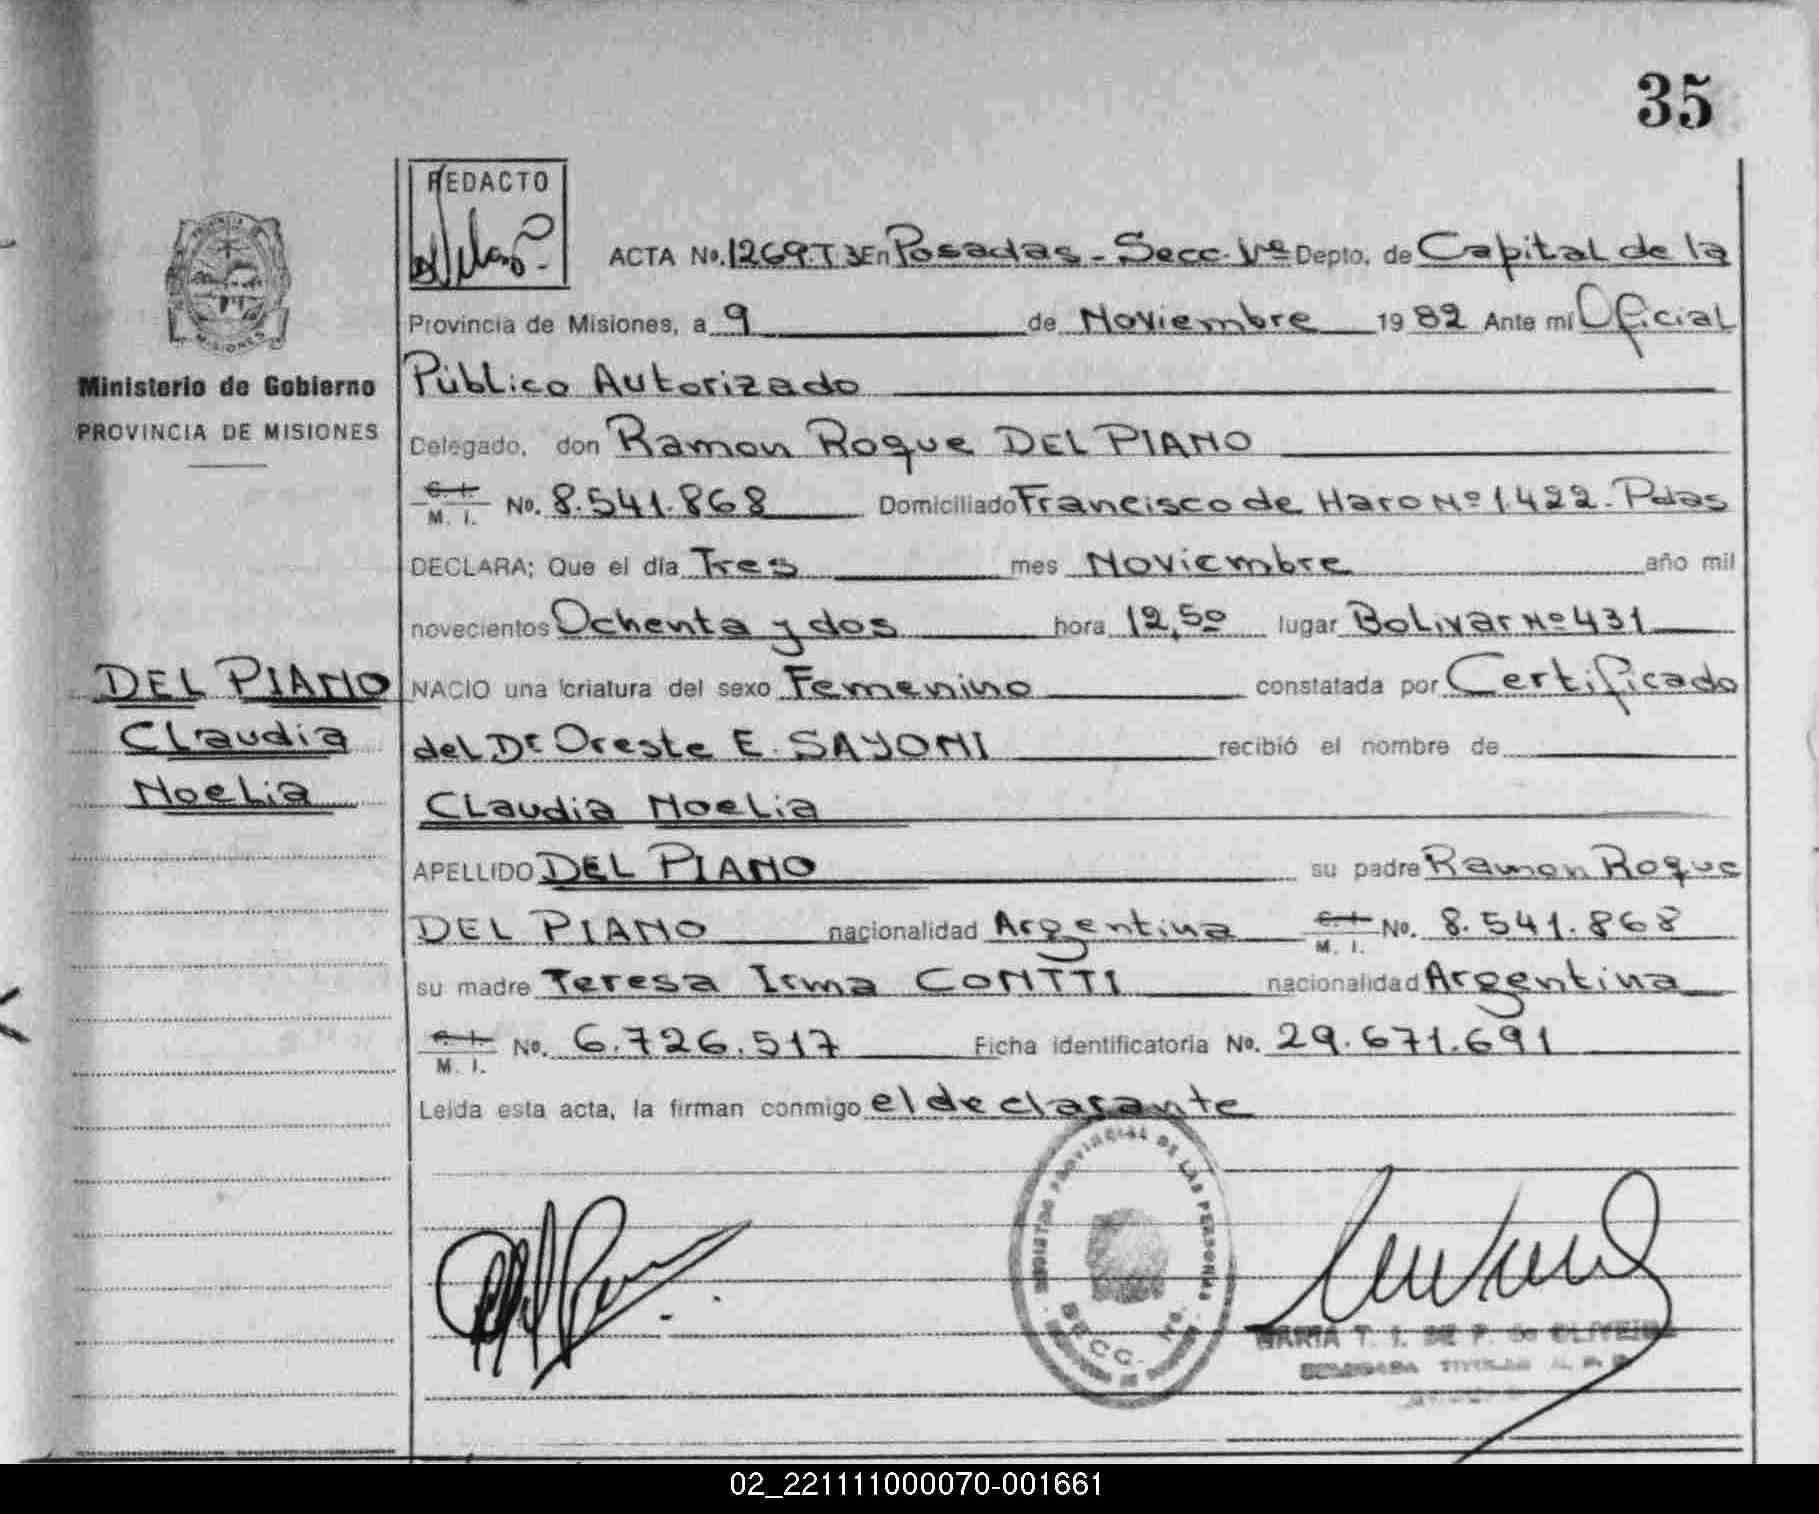 35
REDACTO
ACTA No. 1269.T3 En Posadas - Secc. 1ra Depto. de Capital de la
Provincia de Misiones, a 9 de Noviembre 1982 Ante mi Oficial
Ministerio de Gobierno
PROVINCIA DE MISIONES
Público Autorizado
Delegado, don Ramon Roque DEL PIANO
C. I. M. I. No. 8.541.868 Domiciliado Francisco de Haro Nº 1.422. Pdas
DECLARA; Que el día Tres mes Noviembre año mil
novecientos Ochenta y dos hora 12,50 lugar Bolivar Nº 431
DEL PIANO
Claudia
Noelia
NACIO una criatura del sexo Femenino constatada por Certificado
del Dr Oreste E. SAYONI recibió el nombre de
Claudia Noelia
APELLIDO DEL PIANO su padre Ramon Roque
DEL PIANO nacionalidad Argentina C. I. M. I. No. 8.541.868
su madre Teresa Irma CONTTI nacionalidad Argentina
C. I. M. I. No. 6.726.517 Ficha identificatoria No. 29.671.691
Leída esta acta, la firman conmigo el declarante
PROVINCIAL DE LAS PERSONAS
SECC. No.
MARIA T. I. DE P. de OLIVEIRA
02_221111000070-001661